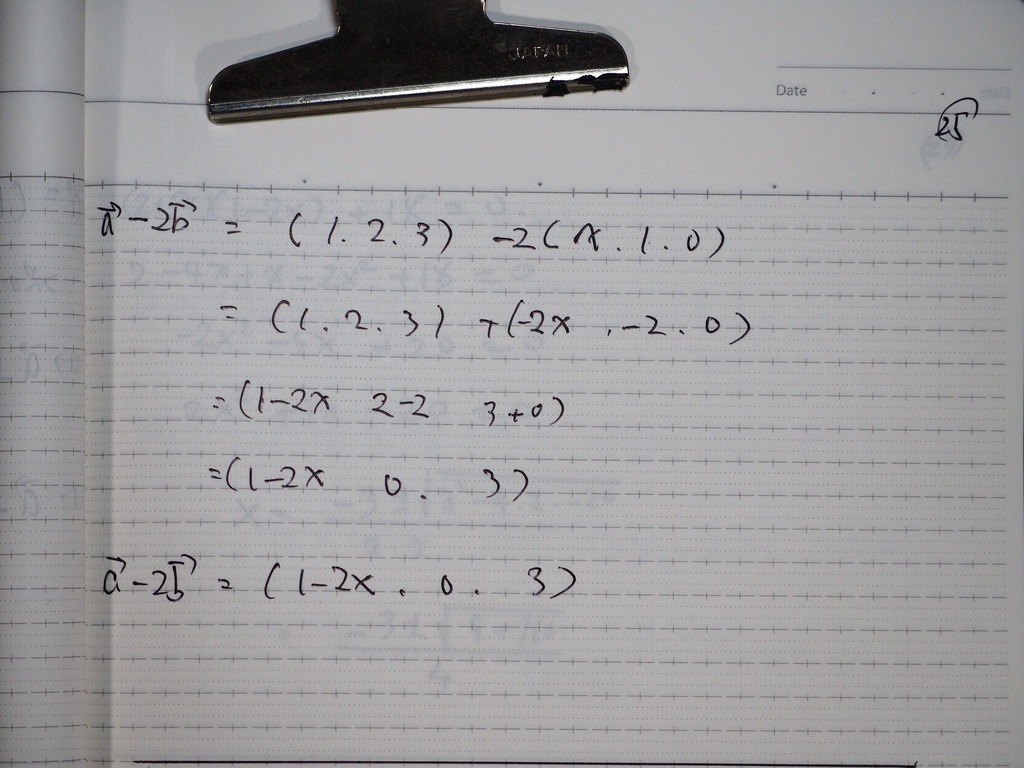 JAPAN
Date
25
a⃗ - 2b⃗ = (1. 2. 3) -2(x. 1. 0)
= (1. 2. 3) + (-2x. -2. 0)
= (1-2x 2-2 3+0)
= (1-2x 0. 3)
a⃗ - 2b⃗ = (1-2x. 0. 3)